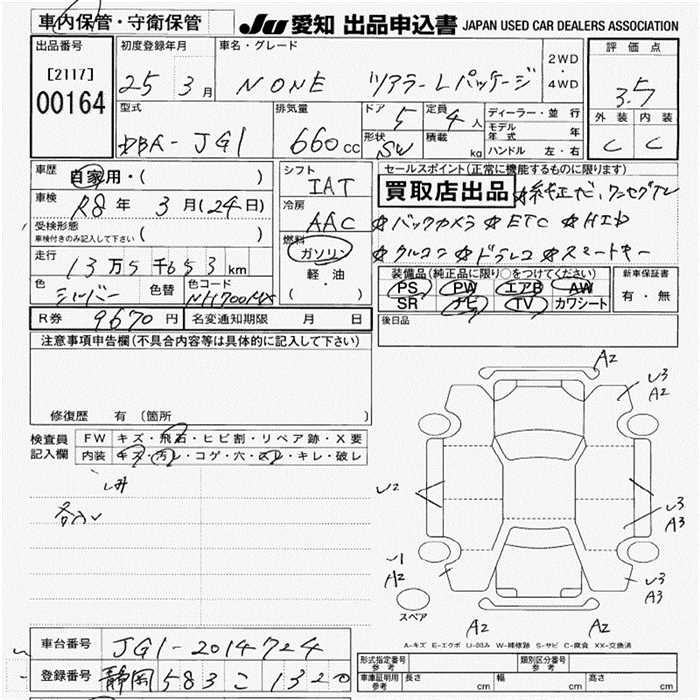 車内保管・守衛保管
JU 愛知 出品申込書 JAPAN USED CAR DEALERS ASSOCIATION
出品番号 初度登録年月 車名・グレード 2WD ・ 4WD 評価点
[2117]
00164
25 3月 NONE ツアラーLパッケージ 3.5
型式 排気量 ドア 5 定員 4人 ディーラー・並行 外装 内装
DBA-JG1 660cc 形状 SW 積載 kg モデル年式 年 C C
ハンドル 左・右
車歴 自家用・( ) シフト IAT セールスポイント(正常に機能するものに限ります)
買取店出品 ☆純正ナビ、ワンセグTV
車検 R8年 3月(24日) 冷房 AAC ☆バックカメラ ☆ETC ☆HID
受検形態 ( )
車検付きのみ記入して下さい
燃料 ガソリン ・ 軽油 ・ ( ) ☆クルコン ☆ドラレコ ☆スマートキー
走行 13万5千653km
装備品(純正品に限り○をつけてください) 新車保証書
色 シルバー 色替 色コード NH700MX
PS PW エアB AW 有・無
SR ナビ TV カワシート
R券 9670円 名変通知期限 月 日 後日品
注意事項申告欄(不具合内容等は具体的に記入して下さい)
修復歴 有(箇所 )
検査員記入欄 FW キズ・飛石・ヒビ割・リペア跡・X要
内装 キズ・汚レ・コゲ・穴・スレ・キレ・破レ
A2
U3
A2
U2
U3
A3
U1
A2
U3
A3
スペア
A2 A2
A-キズ E-エクボ U-凹み W-補修跡 S-サビ C-腐食 XX-交換済
車台番号 JG1-2014724
形式指定番号 参考 類別区分番号 参考
登録番号 静岡 583 こ 1320
車庫証明用 参考 長さ cm 幅 cm 高さ cm